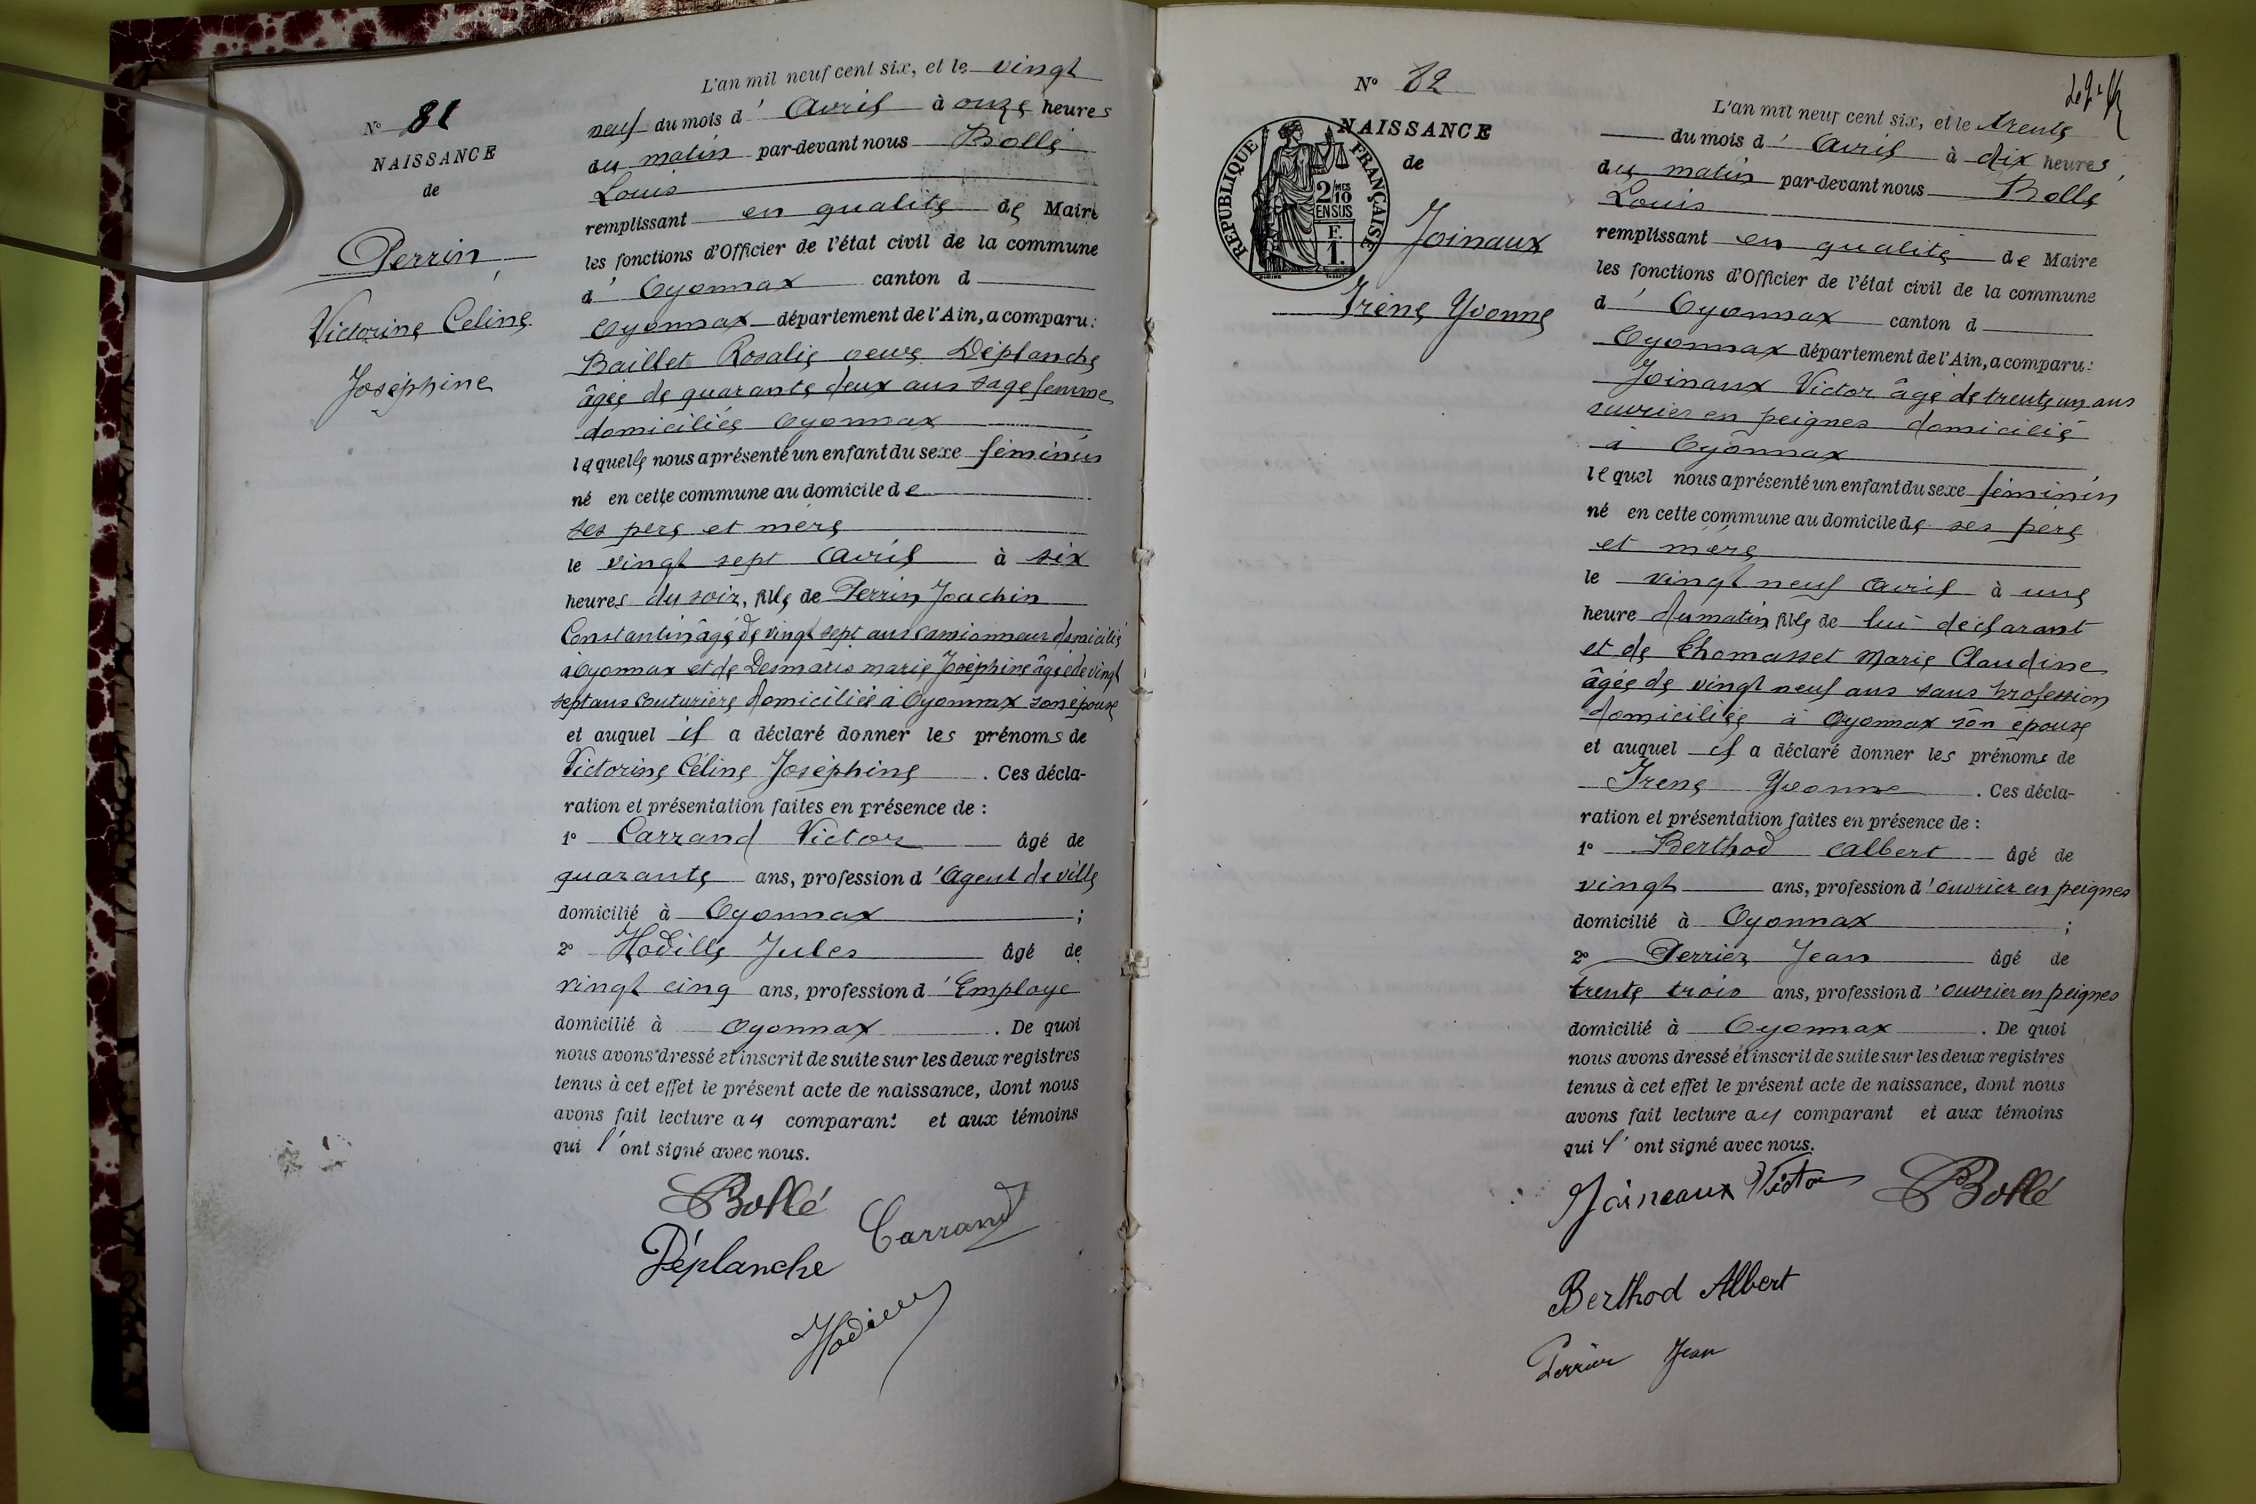 N° 81
NAISSANCE
de
Perrin
Victorine Céline
Joséphine
L'an mil neuf cent six, et le vingt
neuf du mois d' Avril à onze heures
du matin par-devant nous Bollé
Louis
remplissant en qualité de Maire
les fonctions d'Officier de l'état civil de la commune
d' Oyonnax canton d
Oyonnax département de l'Ain, a comparu:
Baillet Rosalie veuve Déplanche
âgée de quarante deux ans sage femme
domiciliée Oyonnax
laquelle nous a présenté un enfant du sexe féminin
né en cette commune au domicile de
ses père et mère
le vingt sept Avril à six
heures du soir, fille de Perrin Joachin
Constantin âgé de vingt sept ans camionneur domicilié
à Oyonnax et de Desmaris marie Joséphine âgée de vingt
sept ans couturière domiciliée à Oyonnax son épouse
et auquel il a déclaré donner les prénoms de
Victorine Céline Joséphine. Ces décla-
ration et présentation faites en présence de :
1° Carrand Victor âgé de
quarante ans, profession d'Agent de ville
domicilié à Oyonnax ;
2° Hodille Jules âgé de
vingt cinq ans, profession d'Employé
domicilié à Oyonnax. De quoi
nous avons dressé et inscrit de suite sur les deux registres
tenus à cet effet le présent acte de naissance, dont nous
avons fait lecture au comparant et aux témoins
qui l'ont signé avec nous.
Bollé
Carrand
Déplanche
Hodille
N° 82
NAISSANCE
de
RÉPUBLIQUE FRANÇAISE
2/10 MES
EN SUS
F.
1.
Joinaux
Irène Yvonne
L'an mil neuf cent six, et le trente
du mois d' Avril à dix heures
du matin par-devant nous Bollé
Louis
remplissant en qualité de Maire
les fonctions d'Officier de l'état civil de la commune
d' Oyonnax canton d
Oyonnax département de l'Ain, a comparu:
Joinaux Victor âgé de trente un ans
ouvrier en peignes domicilié
à Oyonnax
lequel nous a présenté un enfant du sexe féminin
né en cette commune au domicile de ses père
et mère
le vingt neuf Avril à une
heure du matin fille de lui déclarant
et de Thomasset Marie Claudine
âgée de vingt neuf ans sans profession
domiciliée à Oyonnax son épouse
et auquel il a déclaré donner les prénoms de
Irene Yvonne. Ces décla-
ration et présentation faites en présence de :
1° Berthod Albert âgé de
vingt ans, profession d'ouvrier en peignes
domicilié à Oyonnax ;
2° Perrier Jean âgé de
trente trois ans, profession d'ouvrier en peignes
domicilié à Oyonnax. De quoi
nous avons dressé et inscrit de suite sur les deux registres
tenus à cet effet le présent acte de naissance, dont nous
avons fait lecture au comparant et aux témoins
qui l'ont signé avec nous.
Joineaux Victor Bollé
Berthod Albert
Perrier Jean